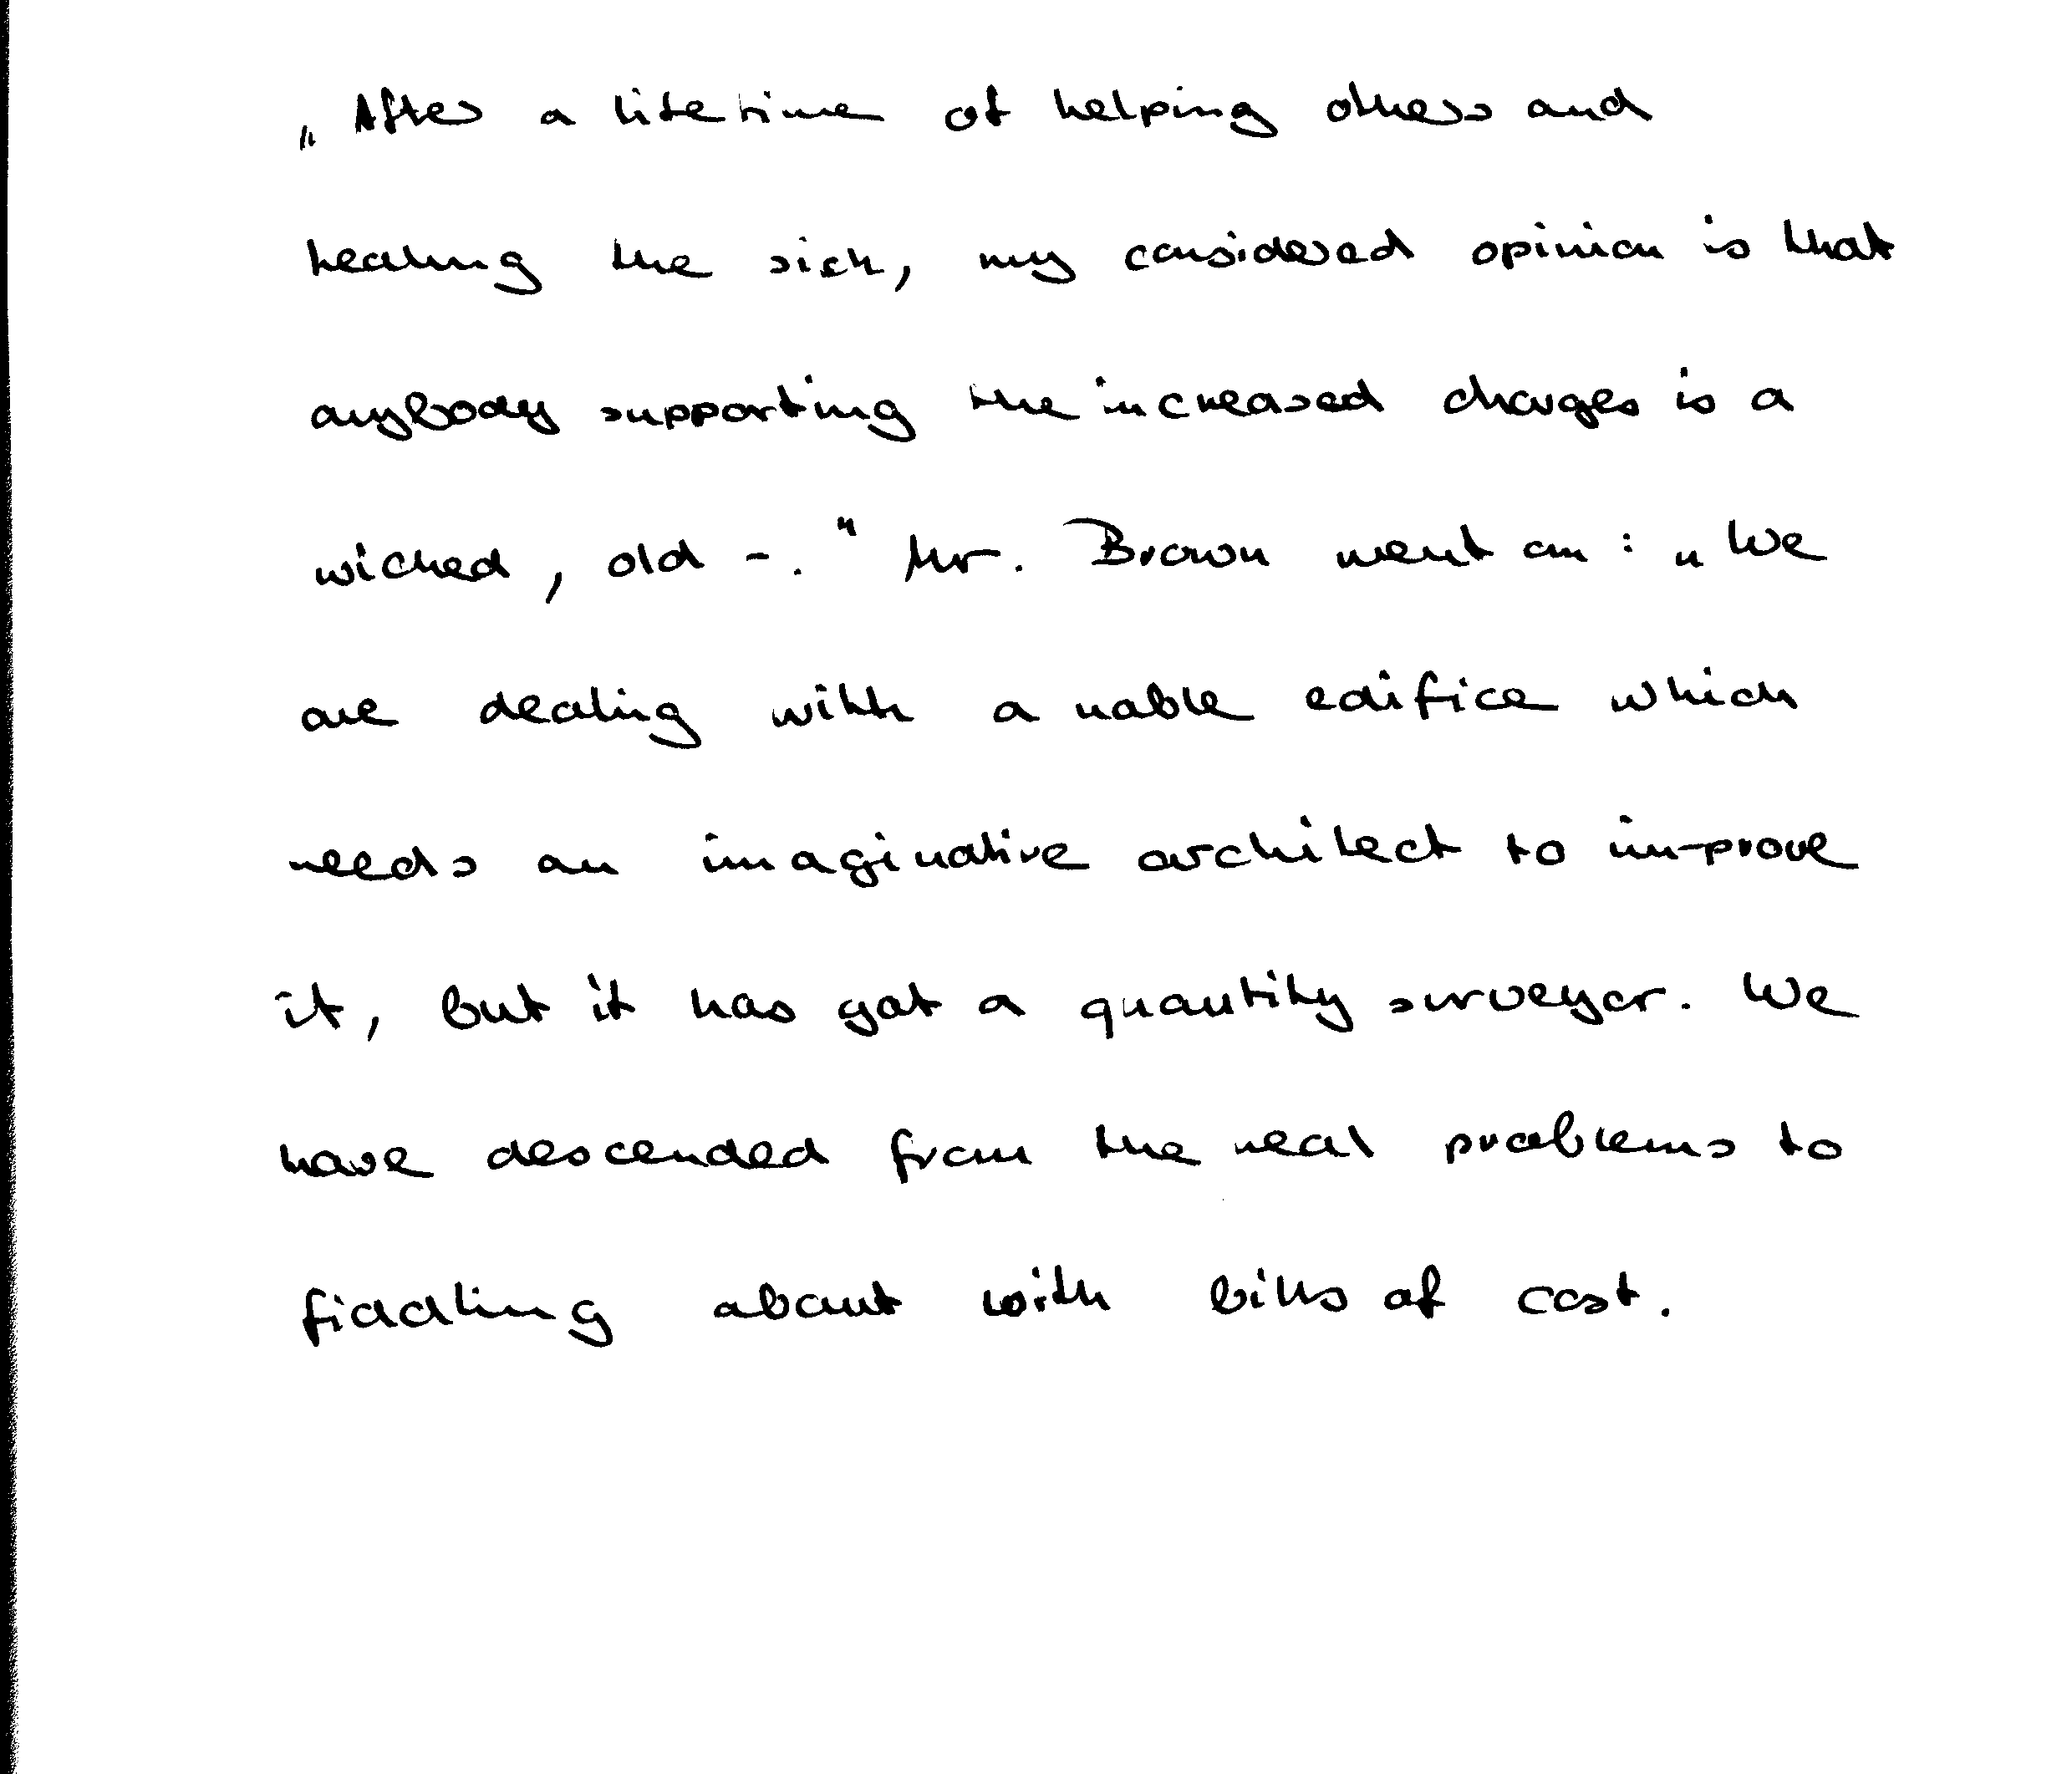 „After a lifetime of helping others and
healing the sick, my considered opinion is that
anybody supporting the increased charges is a
wicked, old -." Mr. Brown went on: "We
are dealing with a noble edifice which
needs an imaginative architect to improve
it, but it has got a quantity surveyor. We
have descended from the real problems to
fiddling about with bills of cost.